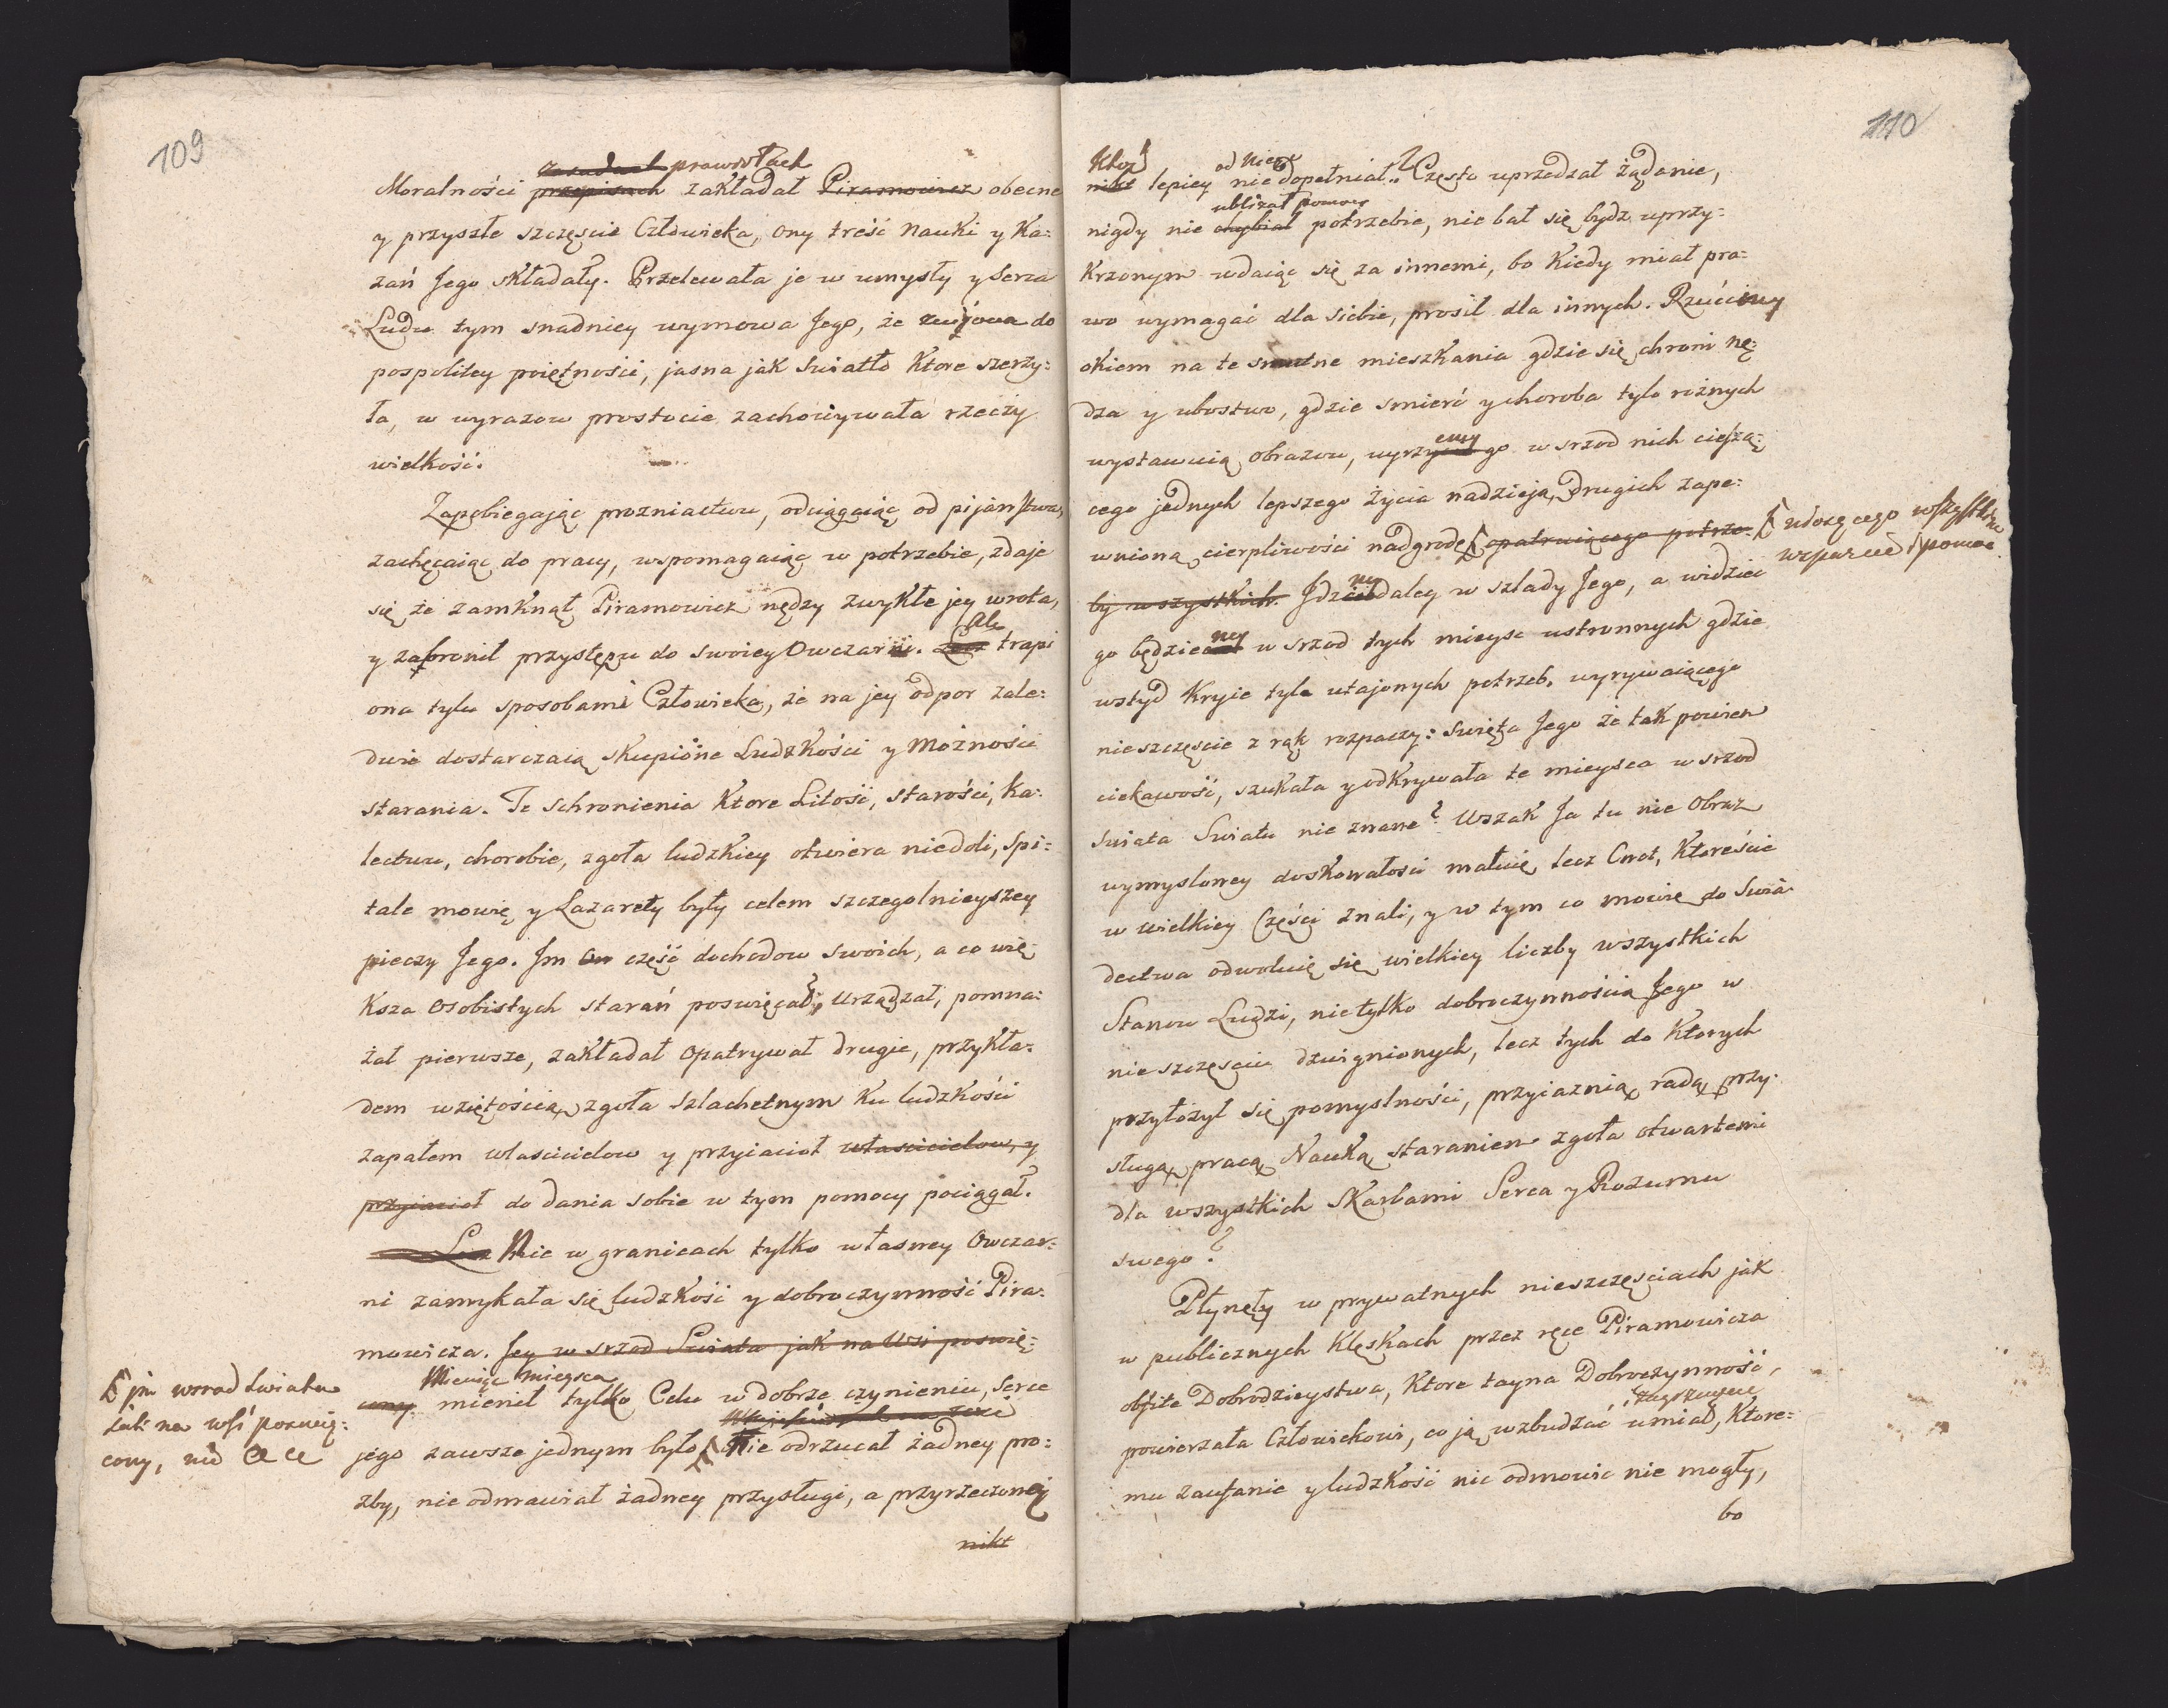 109
zasadach prawidłach
Moralności przepisach zakładał Piramowicz obecne
y przyszłe szczęście Człowieka, ony treść Nauki y Ka:
zań Jego składały. Przelewała je w umysły y Serca
Ludu tym snadniey wymowa Jego, że do
pospolitey poiętności, jasna jak Swiatło Ktore szerzy:
ła, w wyrazow prostocie zachowywała rzeczy
wielkość.
Zapobiegaiąc prozniactwu, odciągaiąc od pijaństwa,
zachęcaiąc do pracy, wspomagaiąc w potrzebie, zdaje
się że zamknął Piramowicz nędzy zwykłe jey wrota,
Ale
y zabronił przystępu do swoiey Owczarni. Lecz trapi
ona tylu sposobami Człowieka, że na jey odpor zale:
dwie dostarczaią skupione Ludzkości y Możności
starania. Te schronienia Ktore Litość, starości, ka:
lectwu, chorobie, zgoła ludzkiey otwiera niedoli, Spi:
tale mowię y Lazarety były celem szczegolnieyszey
pieczy Jego. Im On część dochodow swoich, a co wię:
ksza Osobistych starań poswięcał; Urządzał, pomna:
żał pierwsze, zakładał Opatrywał drugie, przykła:
dem wziętością, zgoła szlachetnym ku ludzkości
zapałem włascicielow y przyiacioł własicielow, y
przyiacioł do dania sobie w tym pomocy pociągał.
Lecz Nie w granicach tylko własney Owczar:
ni zamykała się ludzkość y dobroczynność Pira:
mowicza. Jey w srzod Swiata jak na Wsi poswię:
Mieniąc mieysca
cony mienił tylko Celu w dobrze czynieniu, Serce
jego zawsze jednym było, Nie odrzucał żadney pro:
zby, nie odmawiał żadney przysługi, a przyrzeczoney
nikt
jéj wsrod swiata
jak na wsi poswię:
cony, nie
110
Ktoż od niego
nikt lepiey nie dopełniał.? Często uprzedzał żądanie,
ubliżał pomocy
nigdy nie chybiał potrzebie, nie bał się bydz uprzy:
krzonym udaiąc się za innemi, bo Kiedy miał pra:
wo wymagać dla siebie, prosił dla innych. Rzućmy
okiem na te smutne mieszkania gdzie się chroni nę:
dza y ubostwo, gdzie smierć y choroba tylo rożnych
emy
wystawuią obrazow, uyrzycie go w srzod nich ciesżą:
cego jednych lepszego życia nadzieją, Drugich zape:
wnioną cierpliwości nadgrodą, opatruiącego potrze:
niosącego wszystkim
wsparcie i pomoc.
my
by wszystkich. Idzcie daley w szlady Jego, a widzieć
my
go będziecie w srzod tych mieysc ustronnych gdzie
wstyd Kryie tyle utajonych potrzeb, wyrywaiącego
nieszczęscie z rąk rozpaczy: Swięta Jego że tak powiem
ciekawość, szukała y odkrywała te mieysca w srzod
swiata Swiatu nie znane? Wszak Ja tu nie Obraz
wymysloney doskonałosci maluię lecz Cnot, Ktoreście
w wielkiey Części znali, y w tym co mowie do Swia:
dectwa odwołuię się wielkiey liczby wszystkich
Stanow Ludzi, nietylko dobroczynnością Jego w
nieszczęsciu dzwignionych, lecz tych do Ktorych
przyłożył się pomyslności, przyiaznią, radą, przy:
sługą, pracą, Nauką, staraniem zgoła otwartemi
dla wszystkich Skarbami Serca y Rozumu
swego?
Płynęły w prywatnych nieszczęsciach jak
w publicznych Klęskach przez ręce Piramowicza
obfite Dobrodzieystwa, Ktore tayna Dobroczynność,
powierzała Człowiekowi, co ją wzbudzać umiał, Ktore:
mu zaufanie y ludzkość nic odmowic nie mogły,
bo